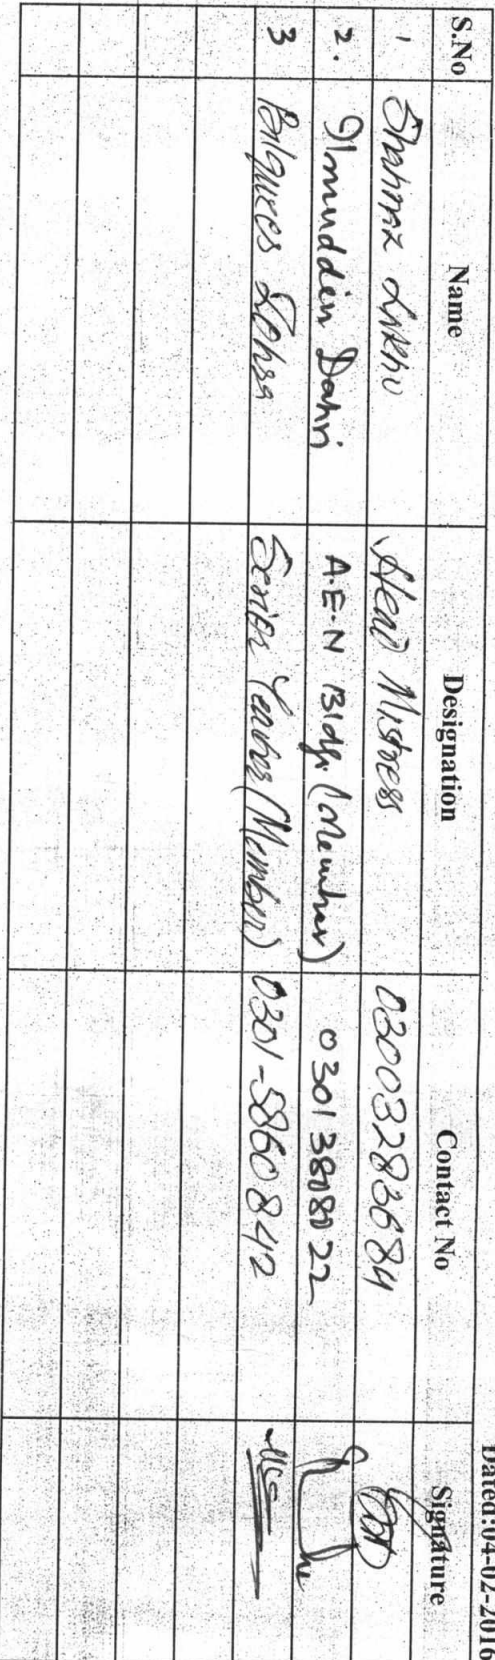 Dated:04-02-2016
S.No Name Designation Contact No Signature
1 Shahnaz Lakho Head Mistress 03003283684
2. Ilmuddin Dahri A.E.N Bldg (Member) 03013808022
3 Senior Teacher (Member) 0301-5860842